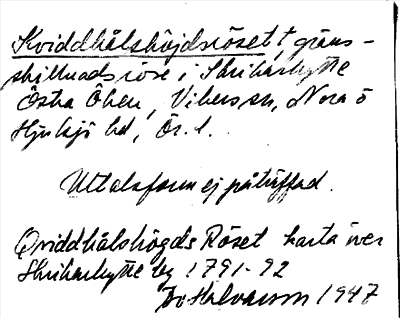 Kviddhålshöjdsröset, † gräns-
skillnadsröse i Skrikarhytte
Östra Öken, Vikers sn, Nora o
Hjulsjö bd, Ör. l.
Uttalsform ej påträffad.
Qviddhålshögds Röset karta över
Skrikarhytte by 1791-92
1947